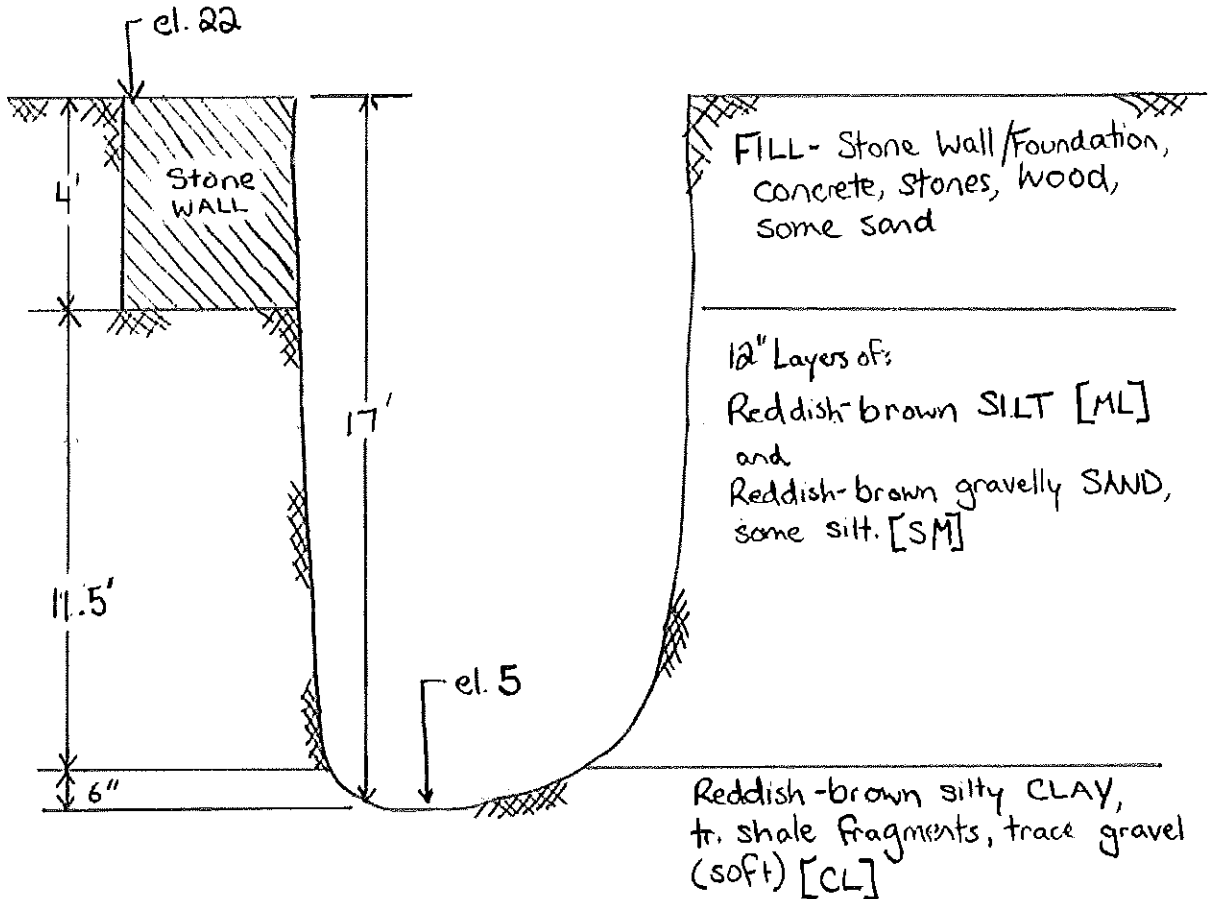 el. 22
4'
Stone
WALL
FILL- Stone Wall/Foundation,
concrete, stones, wood,
some sand
17'
12" Layers of:
Reddish-brown SILT [ML]
and
Reddish-brown gravelly SAND,
some silt. [SM]
11.5'
el. 5
6"
Reddish-brown silty CLAY,
tr. shale fragments, trace gravel
(soft) [CL]